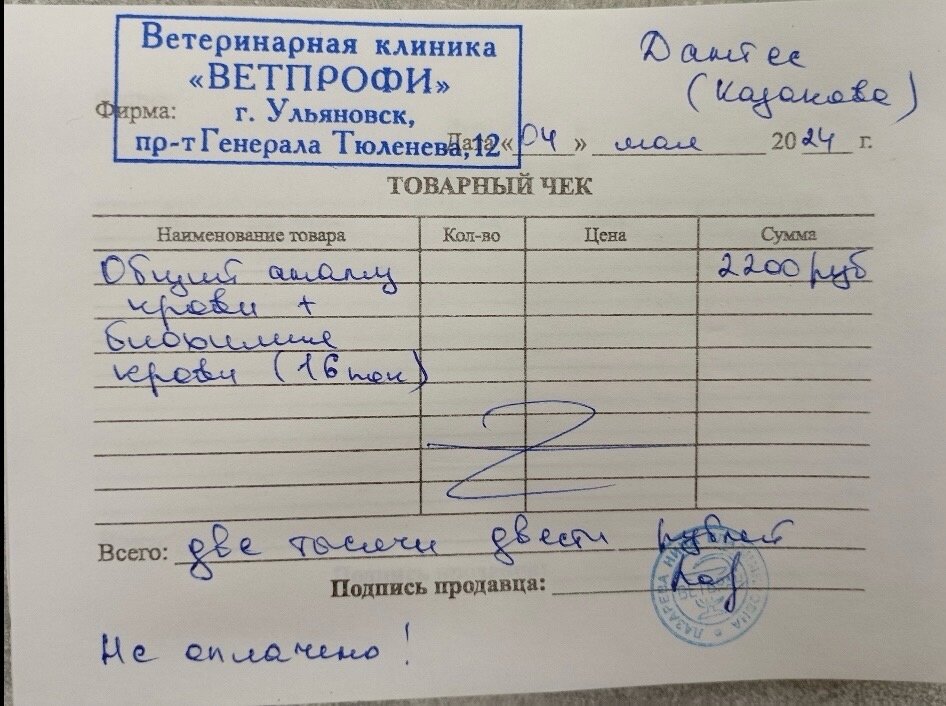 Ветеринарная клиника
«ВЕТПРОФИ»
г. Ульяновск,
пр-т Генерала Тюленева, 12
Дантес
(Казакова)
Фирма:
Дата «04» мая 2024 г.
ТОВАРНЫЙ ЧЕК
Наименование товара Кол-во Цена Сумма
Общий анализ 2200 руб
крови +
биохимия
крови (16 пок)
Всего: две тысячи двести рублей
Подпись продавца:
ЛАЗАРЕВА
Не оплачено!